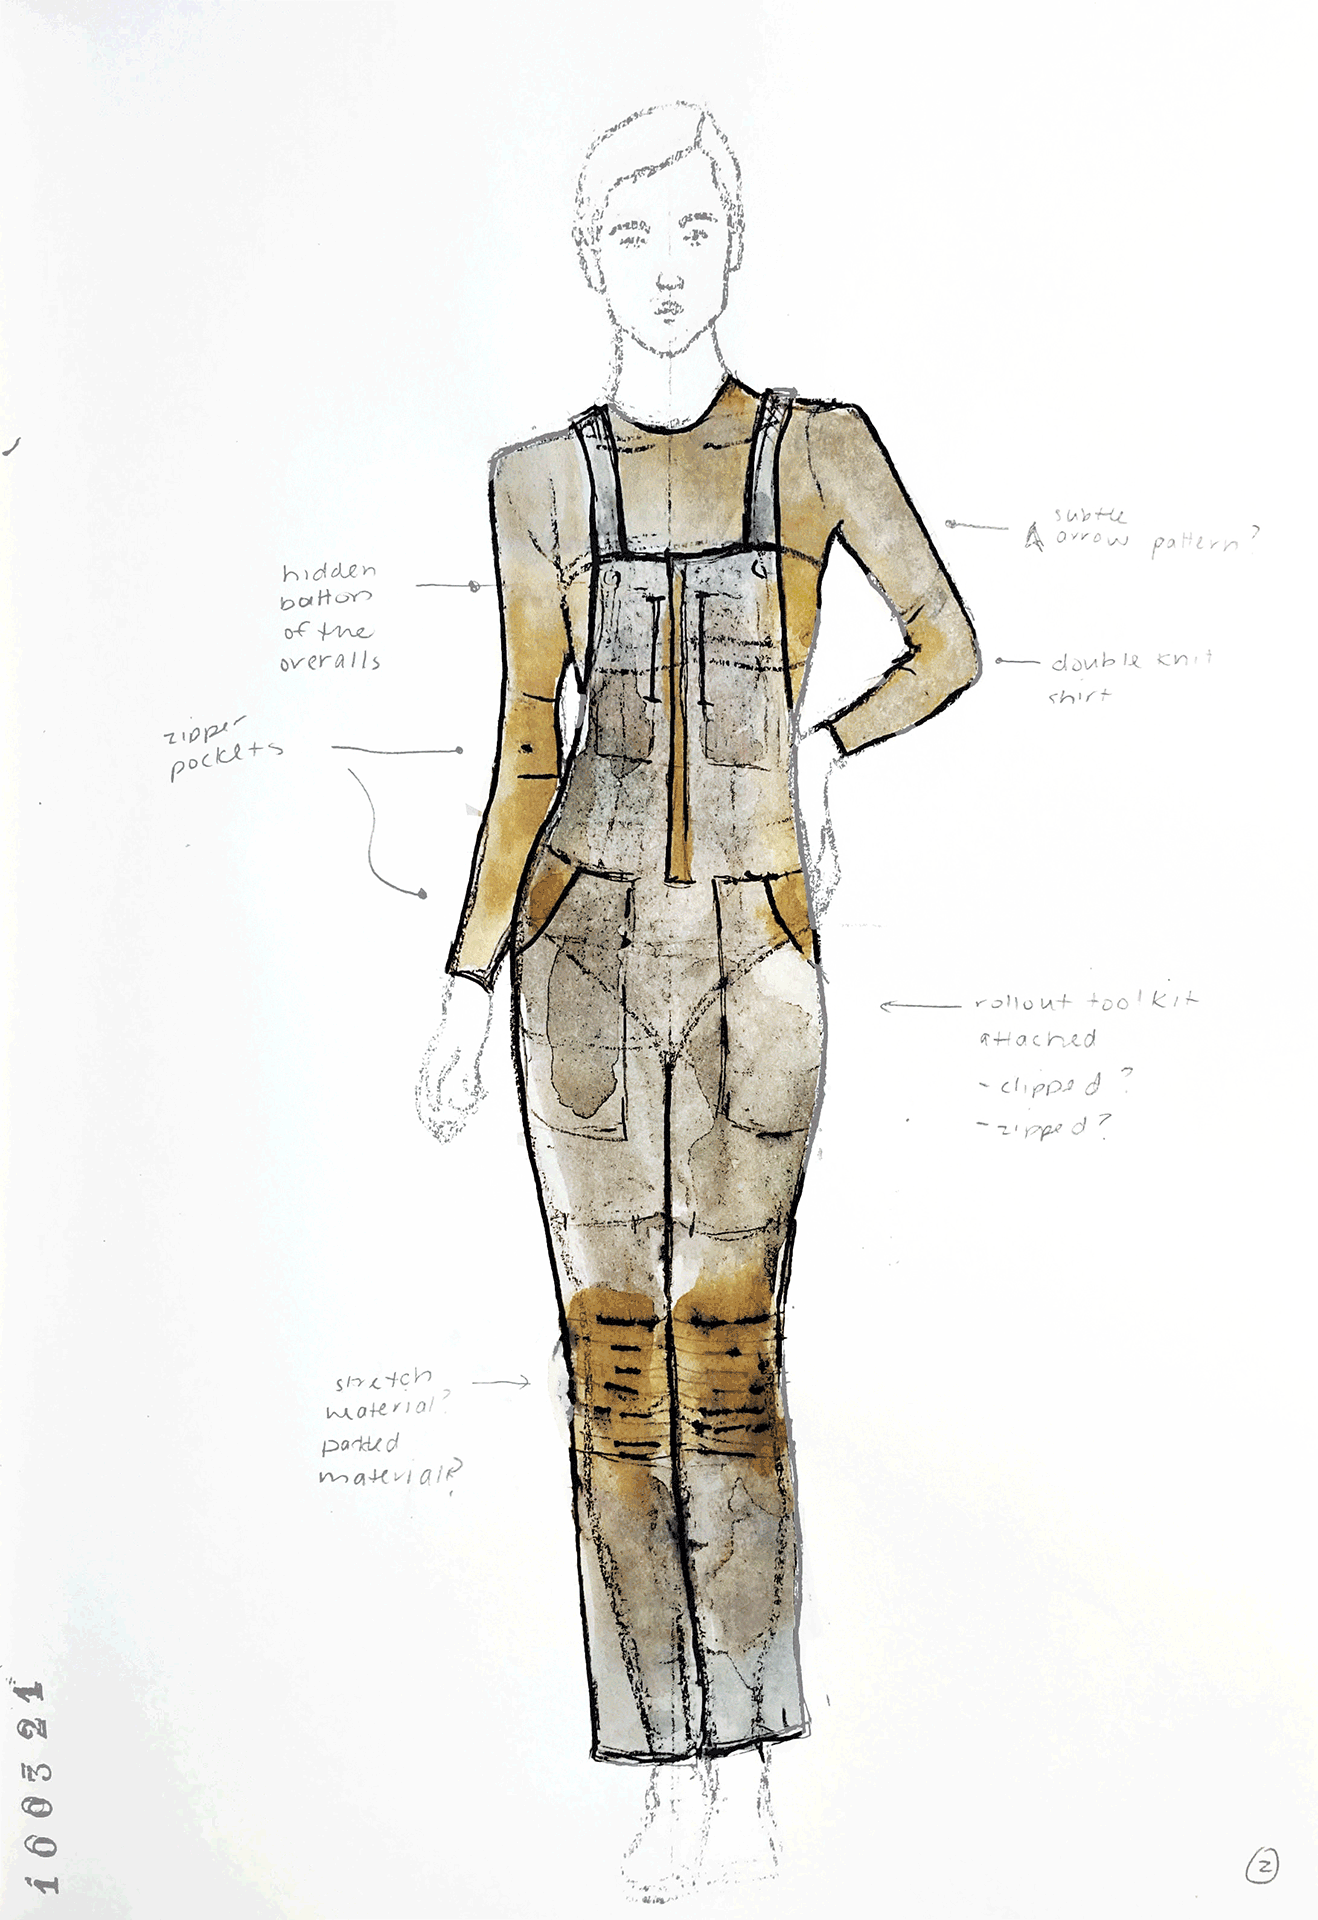 subtle
arrow pattern?
hidden
button
of the
overalls
double knit
shirt
zipper
pockets
rollout toolkit
attached
- clipped?
- zipped?
stretch
material?
material?
100321
2